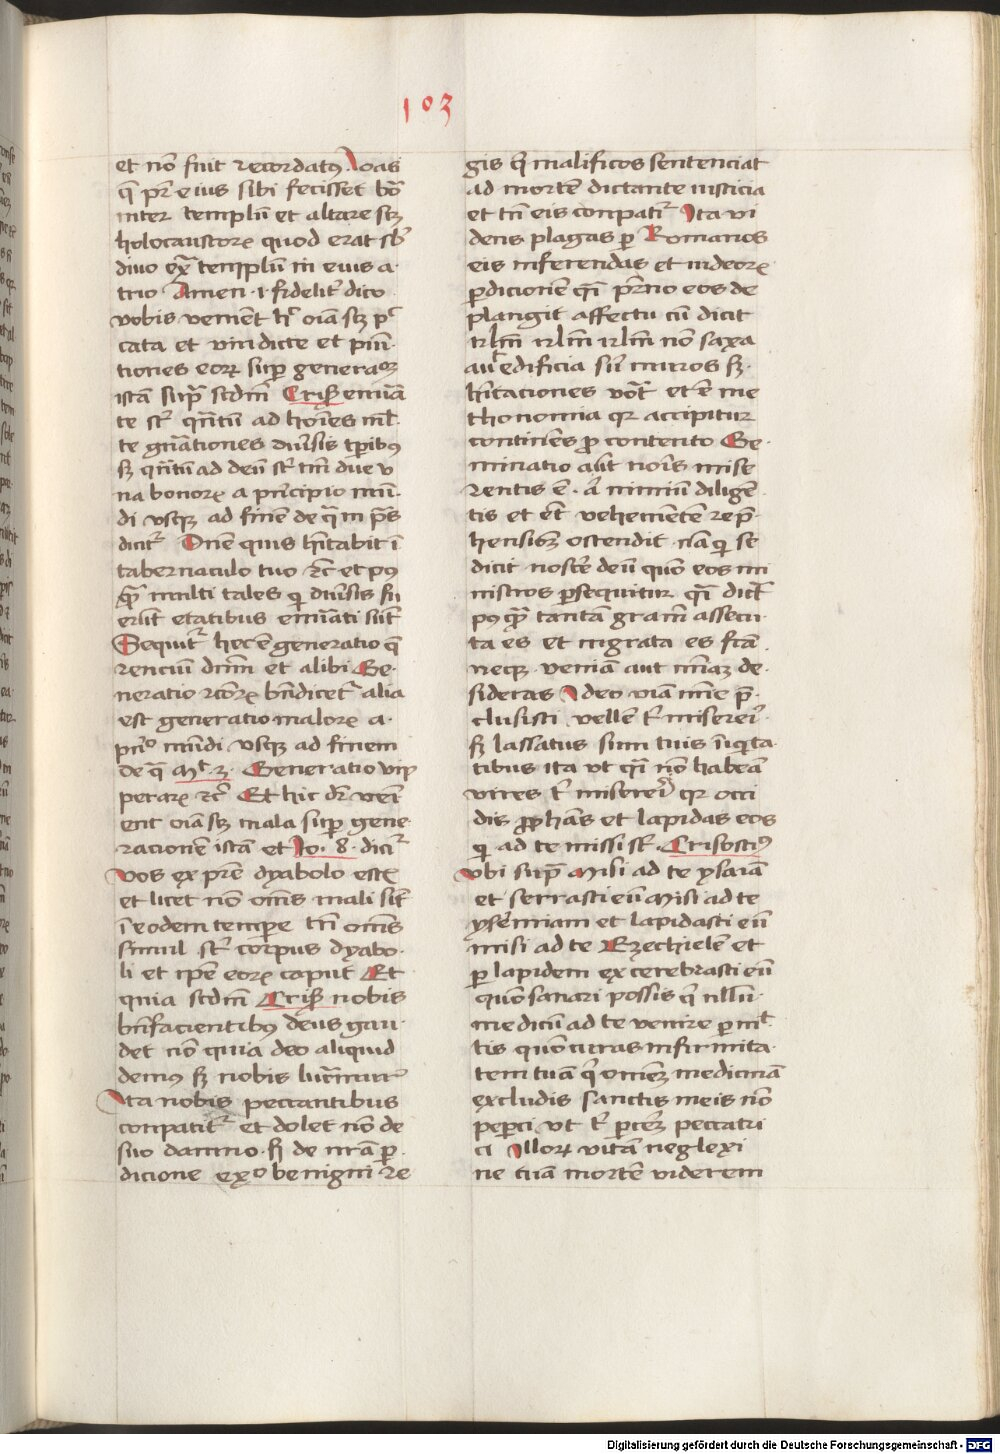 103
et nō fuit recordatꝰ Joas
q̄ pr̄ eius sibi fecisset bō
inter templū et altare scꝫ
holocaustorꝝ quod erat sb̵
diuo ex̄ templū in eius a
trio Amen .i. fideliť dico
vobis venient h̵ oīa scꝫ p̵
cata et vindicte et pūi
tiones eorꝝ suꝑ generaoꝫ
istā sup̄ scdm̄ Criß emūa
te st̵ qn̄tū ad hoīes ml̵
te gn̄ationes diūsis tꝑibꝰ
sꝫ qn̄tū ad deū st̵ tm̄ due v
na bonorꝝ a principio mū
di vsqꝫ ad finē de q̄ in p̄s
dicit̵ Dn̄e quis hītabit ī
tabernaculo tuo ⁊c̄ et pꝰ
q̄ multi tales qi diūsis fu
erūt etatibus emūati sūt
Sequit̵ hec ē generatio q̄
renciū dnm̄ et alibi Ge
neratio rc̄orꝝ bn̄dicet̵ alia
est generatio malorꝝ a
pn̄º mūdi vsqꝫ ad finem
de q̄ Mt̵ 3. Generatio vip
perarꝝ ⁊c̵ Et hic dr̄ veni
ent oīa scꝫ mala suꝑ gene
racionē istā et Jo. 8. dici̵
vos ex pr̄e dyabolo estꝭ
et licet nō om̄s mali sīt
ī eodem tempe tn̄ om̄s
simul st̵ corpus dyabo
li et ip̄e eorꝝ caput Et
quia scdm̄ Criß nobis
bn̄facientibꝰ deus gau
det nō quia deo aliquid
demꝰ sꝫ nobis lucramur
Ita nobis peccantibus
conpatit̵ et dolet nō de
suo damno sꝫ de nr̄a ꝑ
dicione exº benigni re
gis qi malificos sentenciat
ad mortē dictante iusticia
et tn̄ eis conpatit̵ Ita vi
dens plagas ꝑ Romanos
eis inferendas et iudeorꝝ
ꝑdicionē qi p̵no eos de
plangit affectu cū dicit
irl̄m irl̄m irl̄m nō saxa
aut edificia siū muros sꝫ
hītaciones vōt̵ et ē me
thonomia qr accipitur
continēs ꝓ contento Ge
minatio aūt noīs mise
rentis ē. a̵ nimiū diligē
tis et ēt̵ vehementē rep̄
hensiōꝫ ostendit nā qi se
dicit noscē deū quō eos mi
nistros ꝑsequitur qī dict̵
pꝰ q̄ tantā gram̄ assecu
ta es et migrata es fcā
neqꝫ veniā aut mīaꝫ de
sideras Ideo viā mīe p̄
clusisti vellē t̵ miserei̵
sꝫ lassatus sum tuis īiqita
tibus ita vt qī nō habeā
vires t̵ miserei̵ qr occi
dis ꝓphās et lapidas eos
qi ad te missi st̵ Crisostꝰ
vbi sup̄ Misi ad te ysaiā
et serrasti eū Misi ad te
yeremiam et lapidasti eū
misi ad te Ezechielē et
ꝑ lapidem excerebrasti eū
quō sanari possis qi nll̄m
medicū ad te venire ꝑmit
tis quō curas infirmita
tem tuā qi omēꝫ medicinā
excludis sanctis meis nō
peperci vt t̵ ꝑcerē peccatri
ci Illorꝝ vitā neglexi
ne tuā mortē viderem
Digitalisierung gefördert durch die Deutsche Forschungsgemeinschaft - DFG